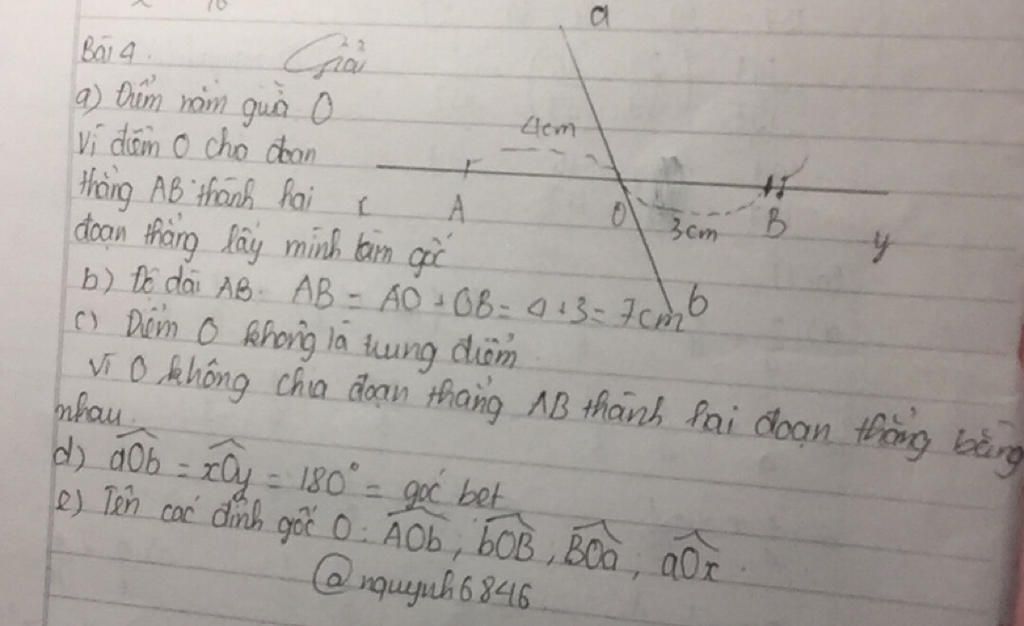 a
Bài 4. Giải
a) Điểm nằm giữa O
4cm
Vì điểm O cho đoạn
thẳng AB thành hai
x A O 3cm B y
đoạn thẳng lấy mình làm gốc
b) Độ dài AB. AB = AO + OB = 4 + 3 = 7cm
b
c) Điểm O không là trung điểm
Vì O không chia đoạn thẳng AB thành hai đoạn thẳng bằng
nhau.
d) aOb = xOy = 180° = góc bẹt
e) Tên các đỉnh gốc O: AOb, bOB, BOa, aOx.
@nguynh6846